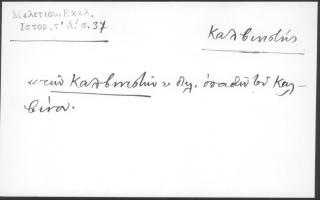 Μελετίου, Εκκλ.
Ιστορ. τ' Δ'. σ. 37
Καλβινιστής
των Καλβινιστών υ δηλ. οπαδών του Καλ-
βίνου.